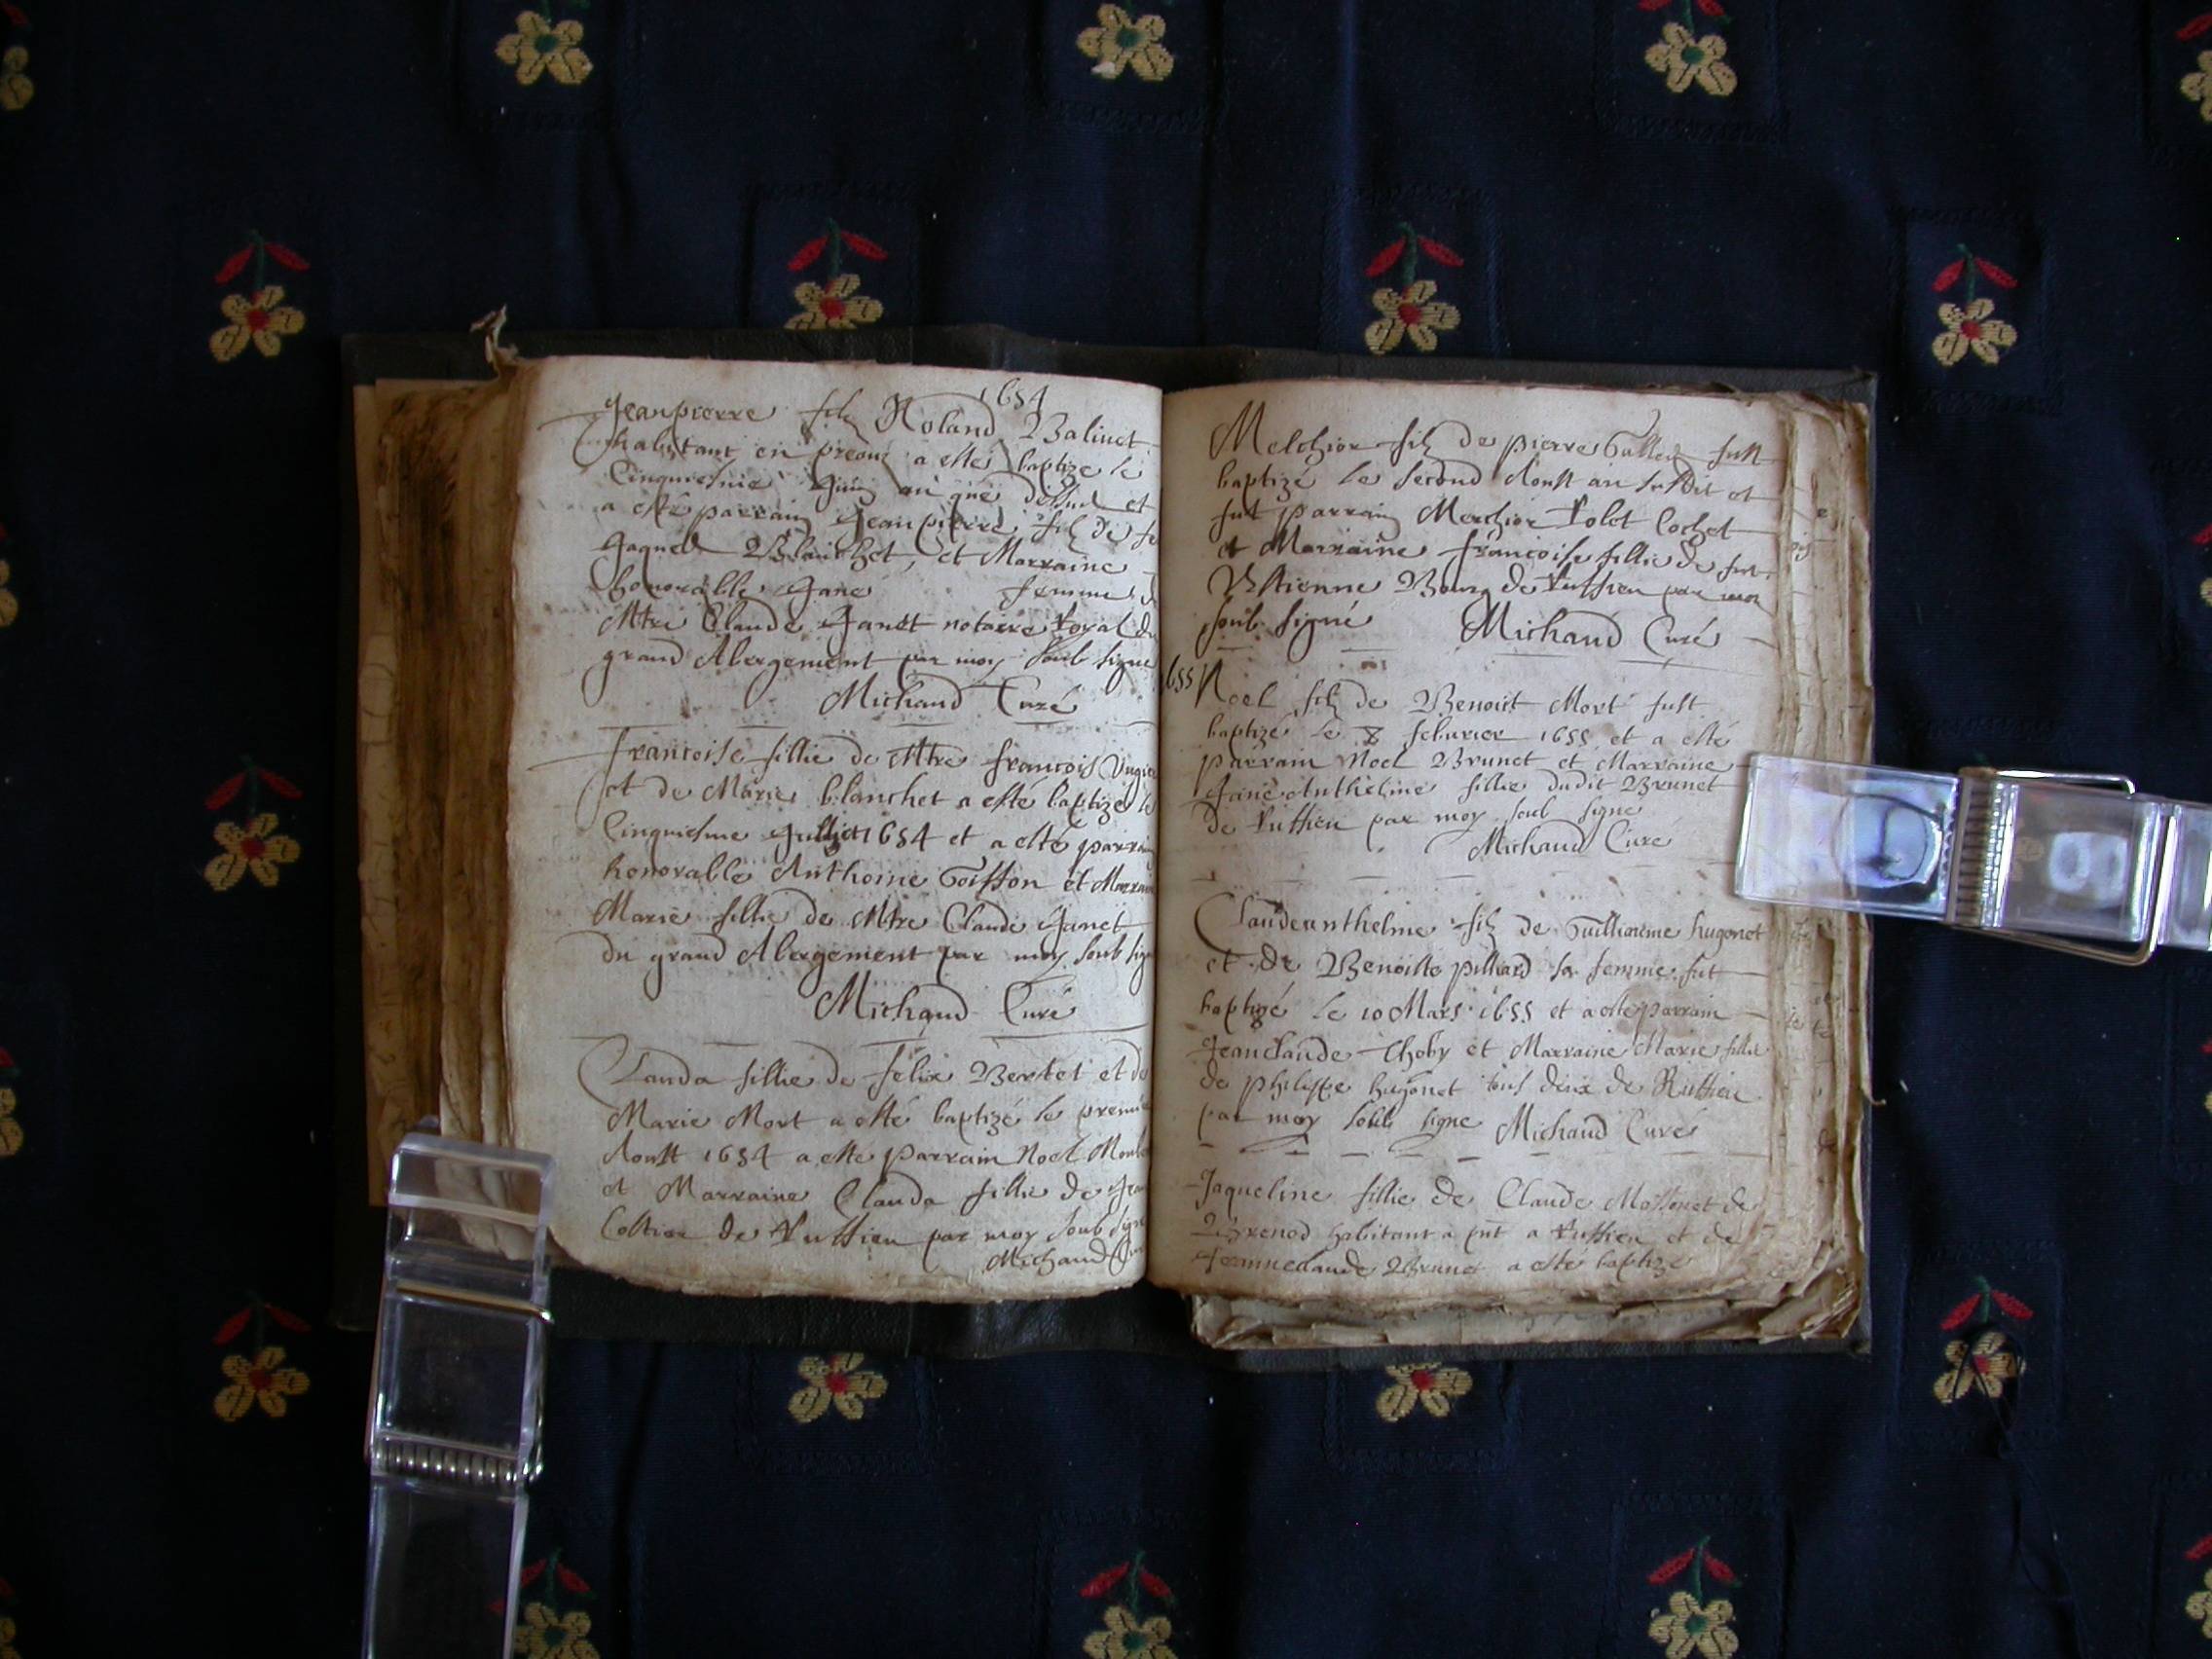 1654
Jeanpierre filz Roland Balivet
habitant en preoux a esté baptize le
Cinquiesme Juin an que dessus et
a esté parrain Jean pierre filz de fe
Jaques Blanchet, et Marraine
honorable Jane femme d
Mtre Claude Janet notaire Royal du
grand Abergement par moy soub signe
Michaud Curé
francoise fillie de Mtre francois
et de Marie blanchet a esté baptize le
Cinquiesme Julliet 1654 et a esté parrain
honorable Anthoine Goiffon et Marrain
Marie fillie de Mtre Claude Janet
du grand Abergement par moy soub sign
Michaud Curé
Clauda fillie de felix Bertet et de
Marie Mort a esté baptizé le premie
Aoust 1654 a este parrain Noel
et Marraine Clauda fillie de Jean
Costier de Ruffieu par moy soub signe
Michaud Cu
Melchior filz de pierre fust
baptizé le second Aoust an susdit et
fut parrain Merchior Rolet Cochet
et Marraine francoise fillie de fut
Estienne Bourg de Ruffieu par moy
soub signé Michaud Curé
1655
Noel filz de Benoist Mort fust
baptizé le 8 febvrier 1655 et a esté
parrain Noel Brunet et Marraine
Jane Antheline fillie dudit Brunet
de Ruffieu par moy soub signe
Michaud Curé
Claudeanthelme filz de Guilliaume hugonet
et de Benoiste pilliard sa femme fut
baptizé le 10 Mars 1655 et a este parrain
Jeanclaude Choby et Marraine Marie fillie
de philippe hugonet tous deux de Ruffieu
par moy soub signe Michaud Curé
Jaqueline fillie de Claude Mossonet de
Brenod habitant a pnt a Ruffieu et de
Jeanneclaude Brunet a esté baptizé